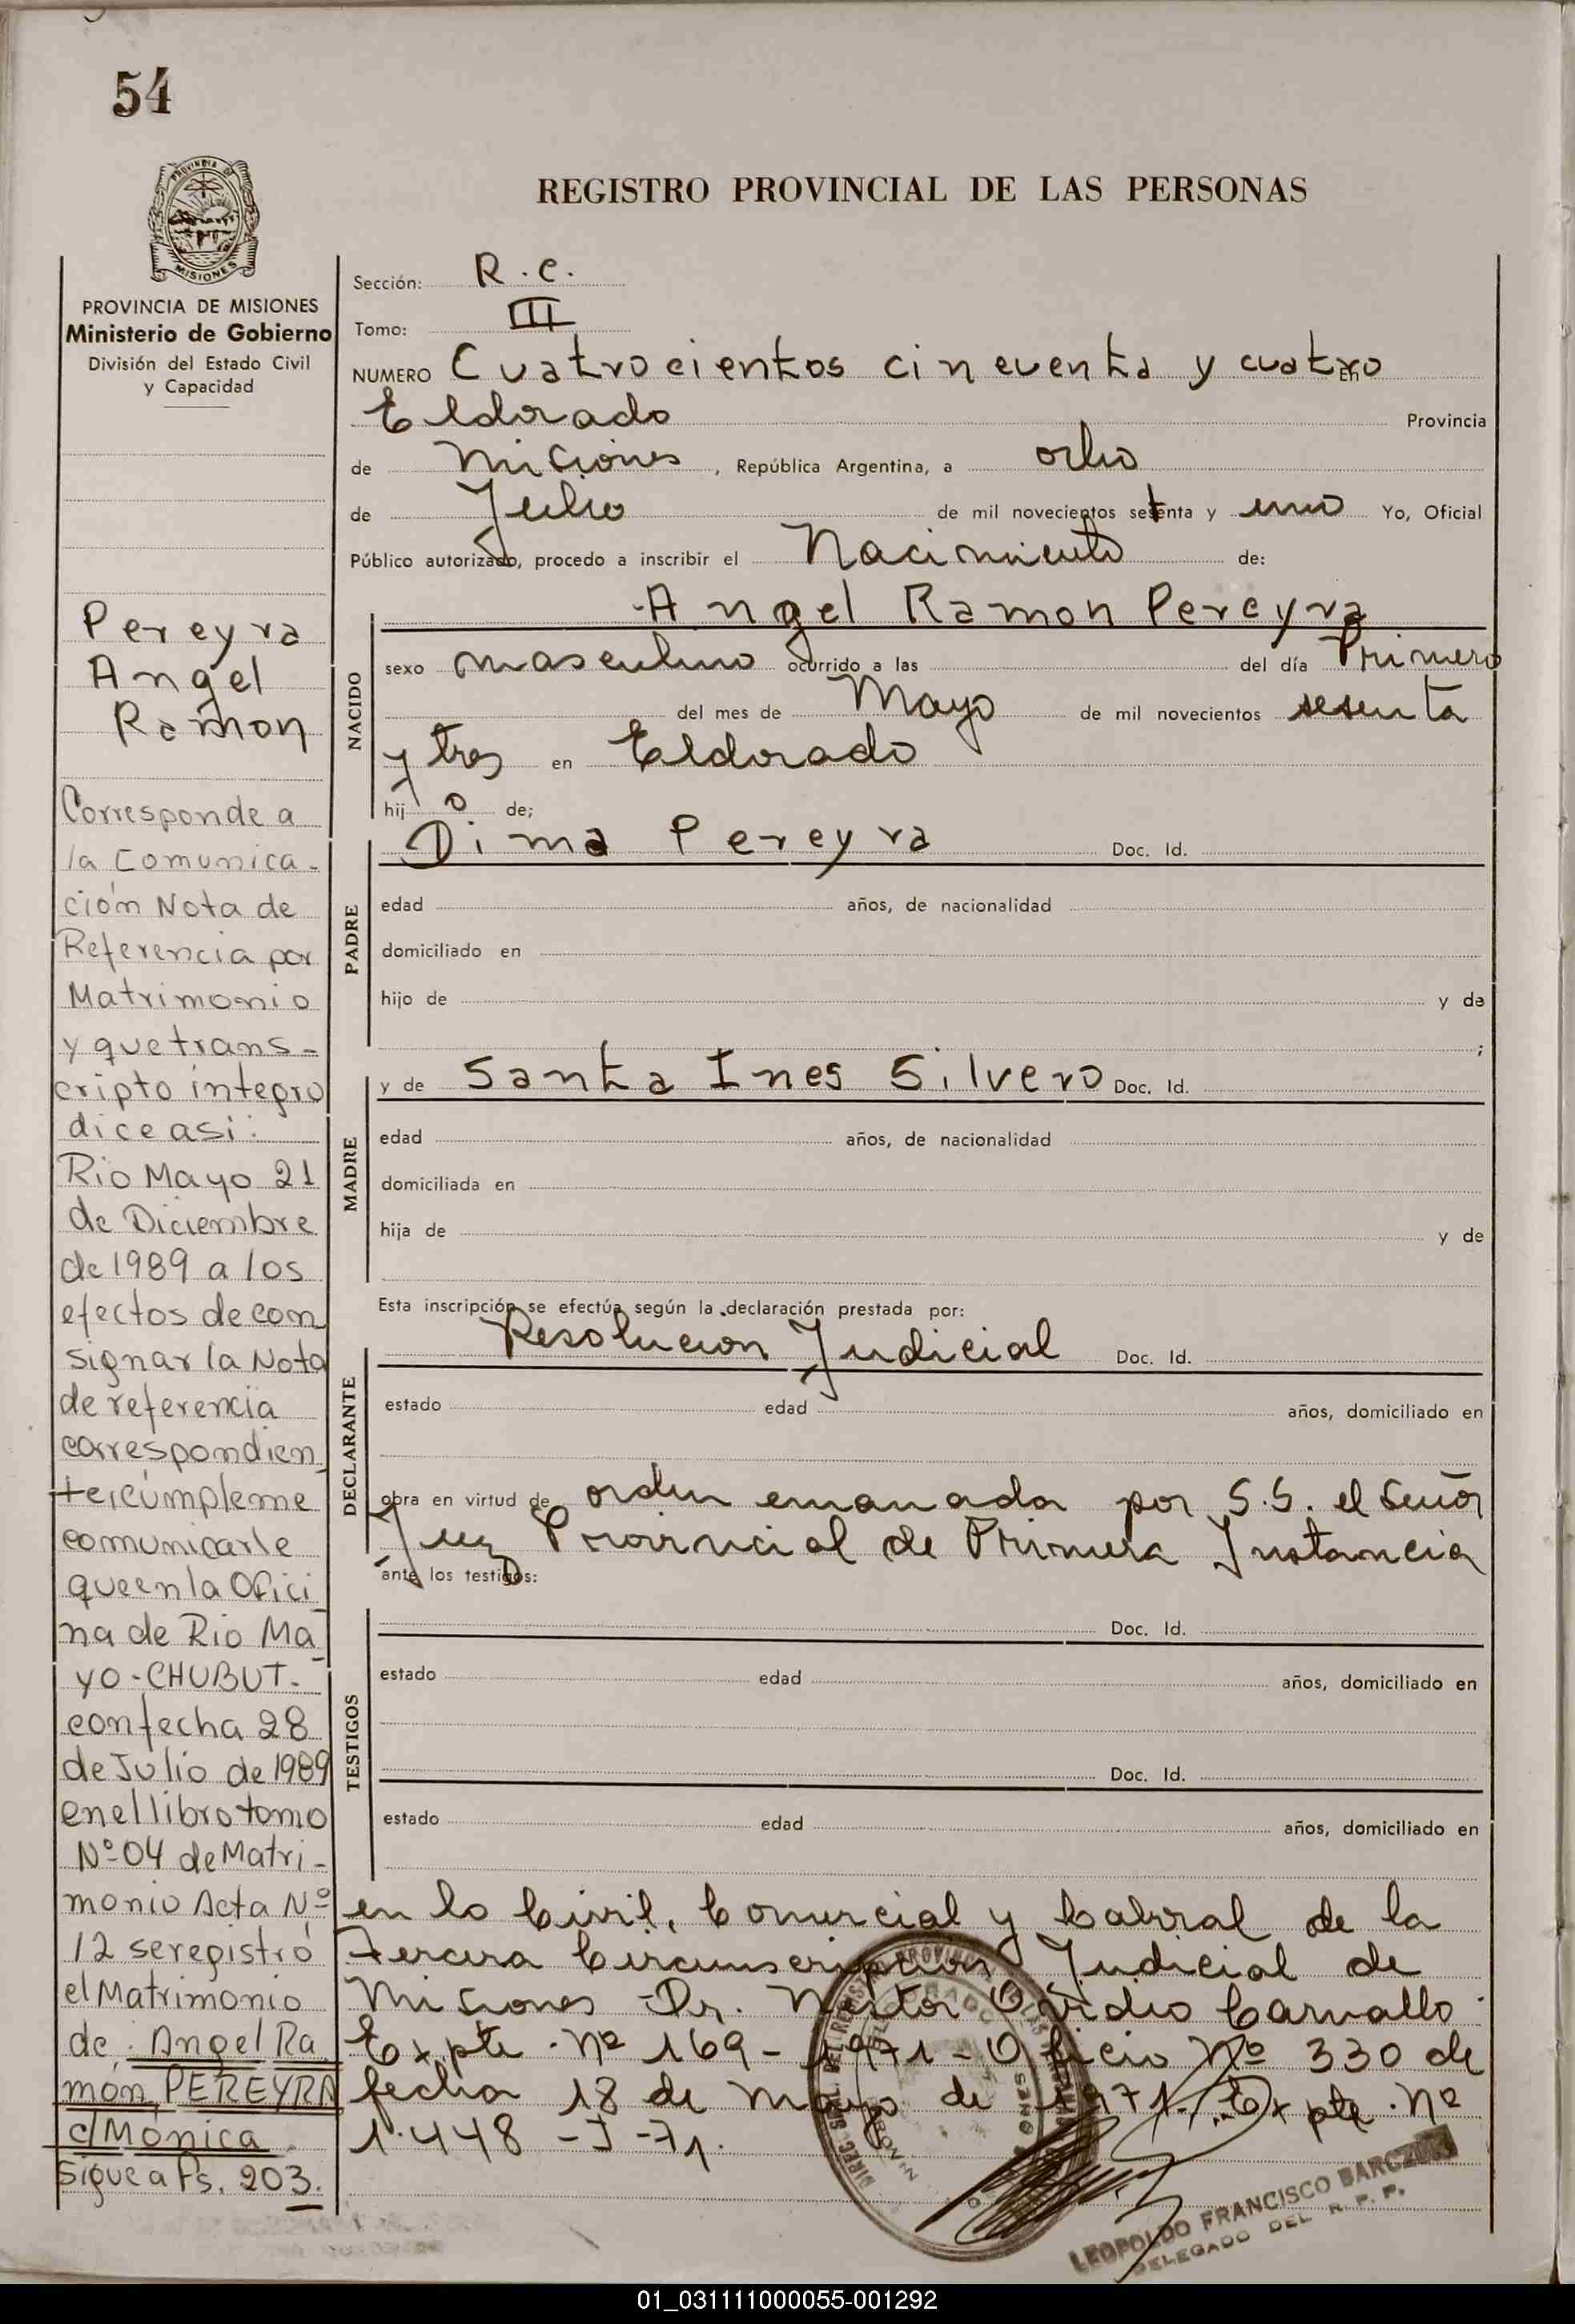 54
PROVINCIA DE
MISIONES
REGISTRO PROVINCIAL DE LAS PERSONAS
PROVINCIA DE MISIONES
Ministerio de Gobierno
División del Estado Civil
y Capacidad
Pereyra
Angel
Ramon
Corresponde a
la Comunica-
ción Nota de
Referencia por
Matrimonio
y que trans-
cripto integro
dice asi:
Rio Mayo 21
de Diciembre
de 1989 a los
efectos de con
signar la Nota
de referencia
correspondien
te, cúmpleme
comunicarle
que en la Ofici
na de Rio Ma
yo-CHUBUT.
con fecha 28
de Julio de 1989
en el libro tomo
Nº 04 de Matri-
monio Acta Nº
12 se registró
el Matrimonio
de: Angel Ra
món, PEREYRA
c/Monica
Sigue a Fs. 203.
Sección: R.C.
Tomo: III
NUMERO Cuatrocientos cincuenta y cuatro En
Eldorado Provincia
de Misiones, República Argentina, a ocho
de Julio de mil novecientos setenta y uno Yo, Oficial
Público autorizado, procedo a inscribir el Nacimiento de:
NACIDO
Angel Ramon Pereyra
sexo masculino ocurrido a las del día Primero
del mes de Mayo de mil novecientos sesenta
y tres en Eldorado
hijo de;
PADRE
Dima Pereyra Doc. Id.
edad años, de nacionalidad
domiciliado en
hijo de y de
;
MADRE
y de Santa Ines Silvero Doc. Id.
edad años, de nacionalidad
domiciliada en
hija de y de
Esta inscripción se efectúa según la declaración prestada por:
DECLARANTE
Resolucion Judicial Doc. Id.
estado edad años, domiciliado en
obra en virtud de orden emanada por S.S. el Señor
Juez Provincial de Primera Instancia
ante los testigos:
TESTIGOS
Doc. Id.
estado edad años, domiciliado en
Doc. Id.
estado edad años, domiciliado en
en lo Civil, Comercial y Laboral de la
tercera Circunscripcion Judicial de
Misiones Dr. Nestor Ovidio Carvallo
Expte. Nº 169-1971-Oficio Nº 330 de
fecha 18 de Mayo de 1971. Expte. Nº
1.448-J-71.
LEOPOLDO FRANCISCO BARCZUK
DELEGADO DEL R. P. P.
01_031111000055-001292